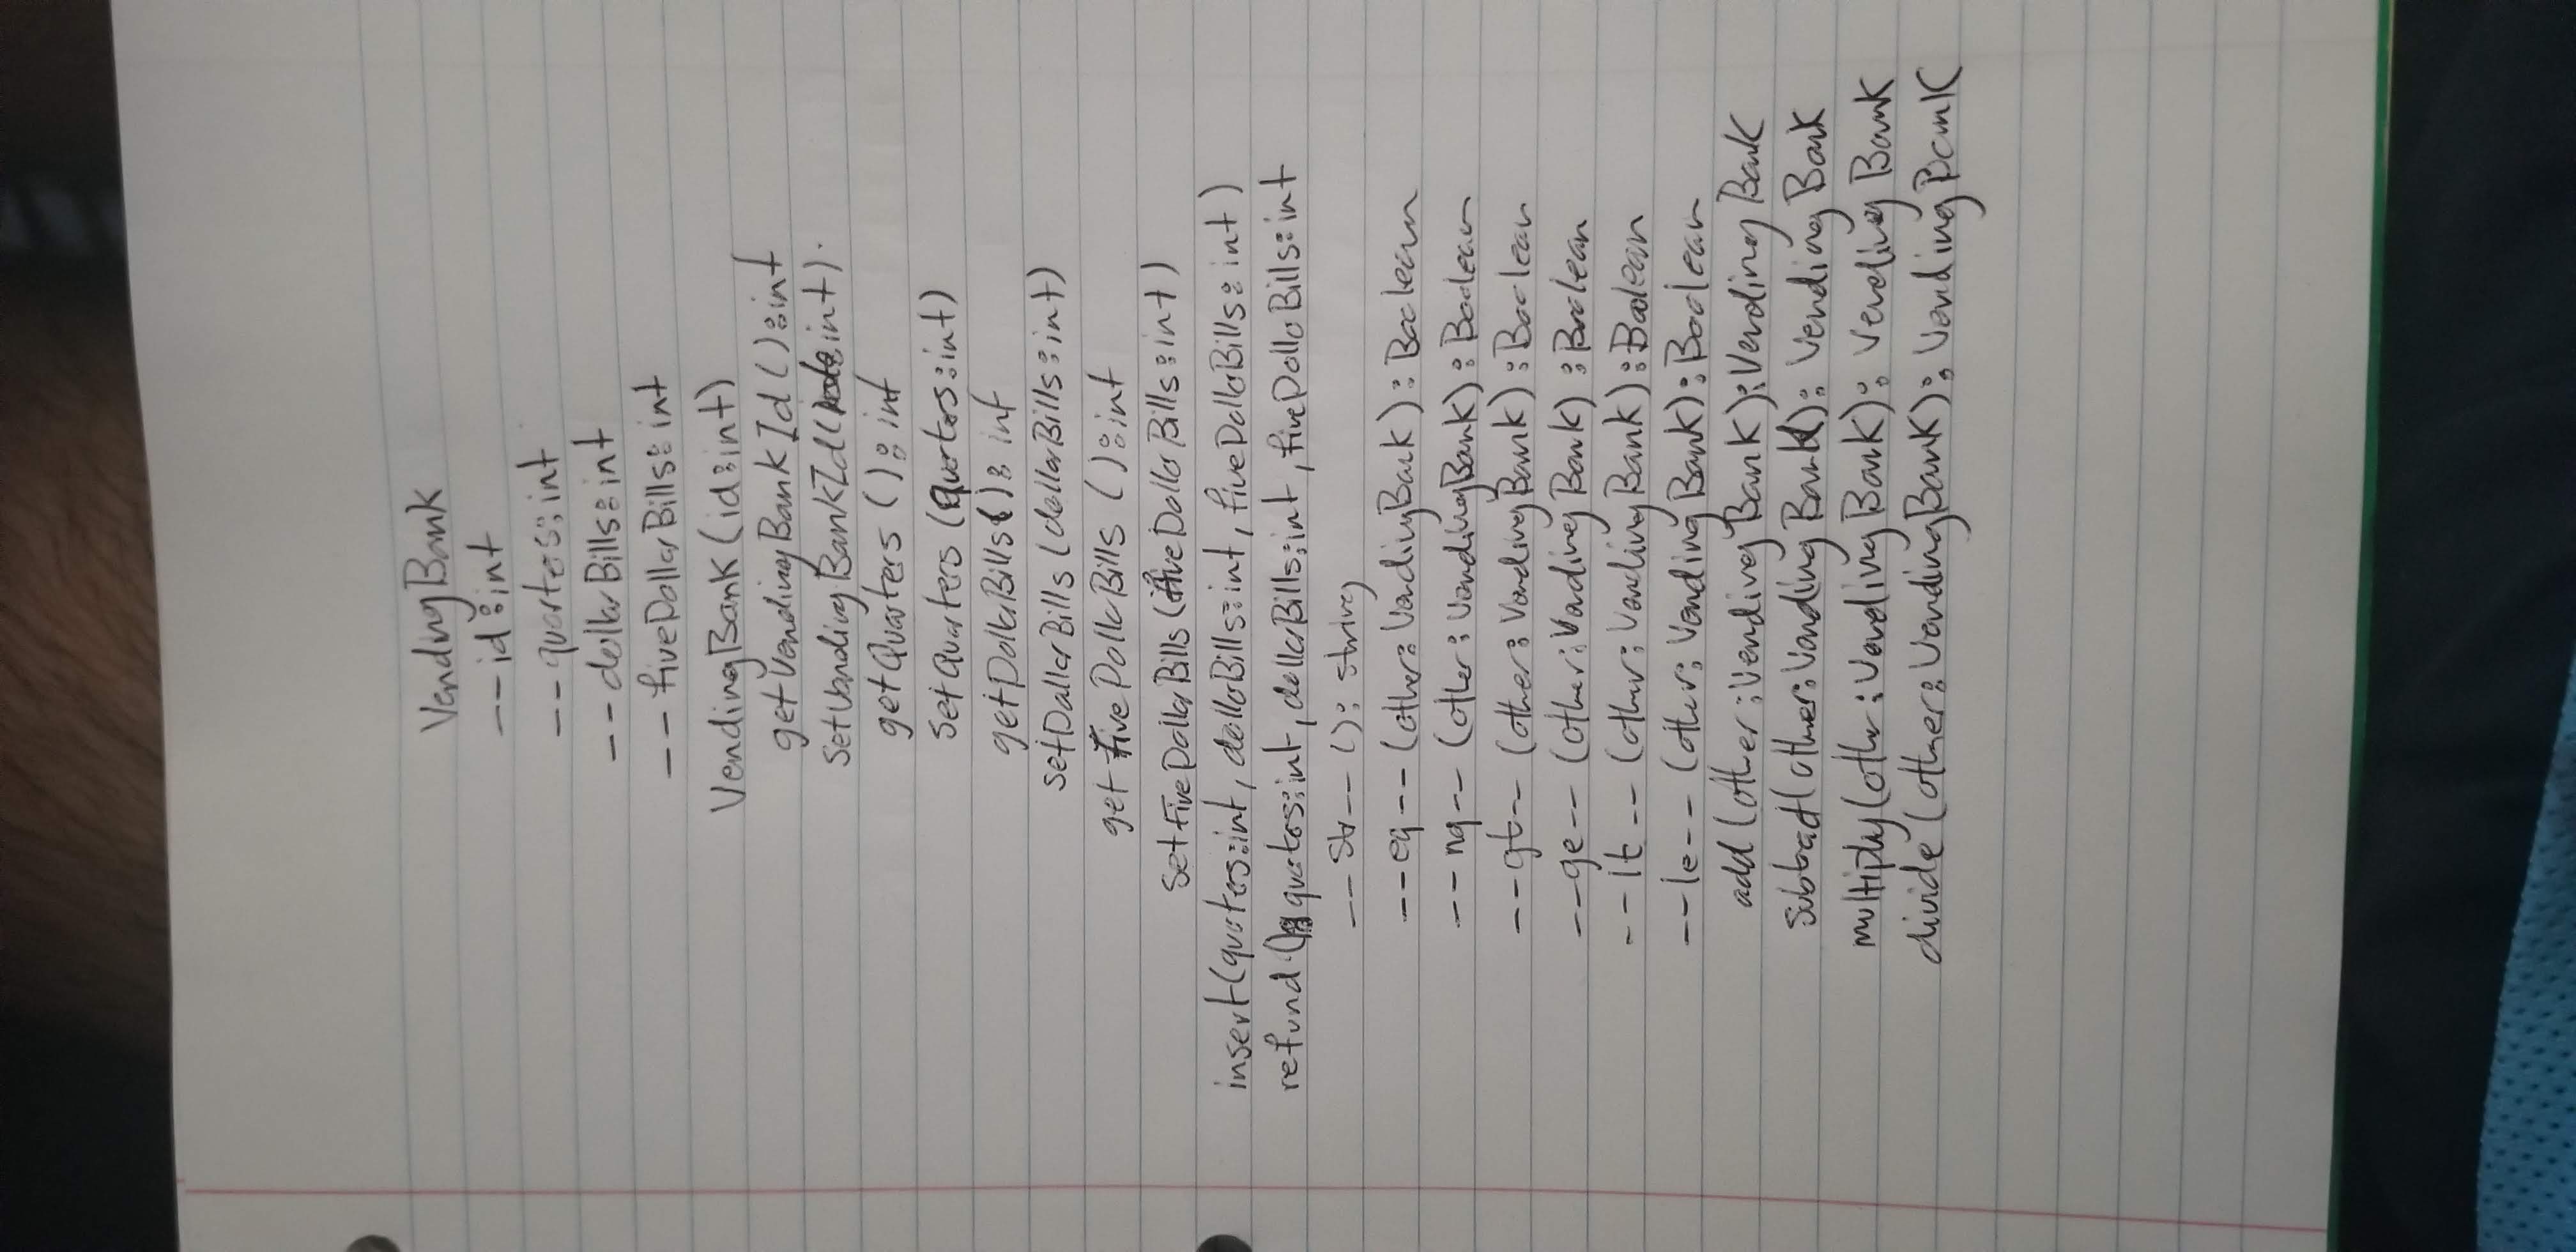 VendingBank
-- id : int
-- quartes : int
-- dollarBills : int
-- fiveDollarBills : int
VendingBank (id : int)
getVendingBankId () : int
SetVendingBankId( : int)
getQuarters () : int
SetQuarters (Quarters : int)
getDollarBills() : int
SetDallarBills (dollarBills : int)
get Five DollarBills () : int
SetFiveDollarBills (fiveDollarBills : int)
insert(quarters : int, dollarBills : int, fiveDollarBills : int)
refund () quarters : int, dollarBills : int, fiveDollarBills : int
-- str -- () : string
-- eq -- (other : VendingBank) : Boolean
-- nq -- (other : VendingBank) : Boolean
-- gt -- (other : VendingBank) : Boolean
-- ge -- (other : Vending Bank) : Boolean
-- lt -- (other : Vending Bank) : Boolean
-- le -- (other : Vending Bank) : Boolean
add (other : Vending Bank) : Vending Bank
Subtract(other : Vending Bank) : Vending Bank
multiply (other : Vending Bank) : Vending Bank
divide (other : VendingBank) : Vending Bank